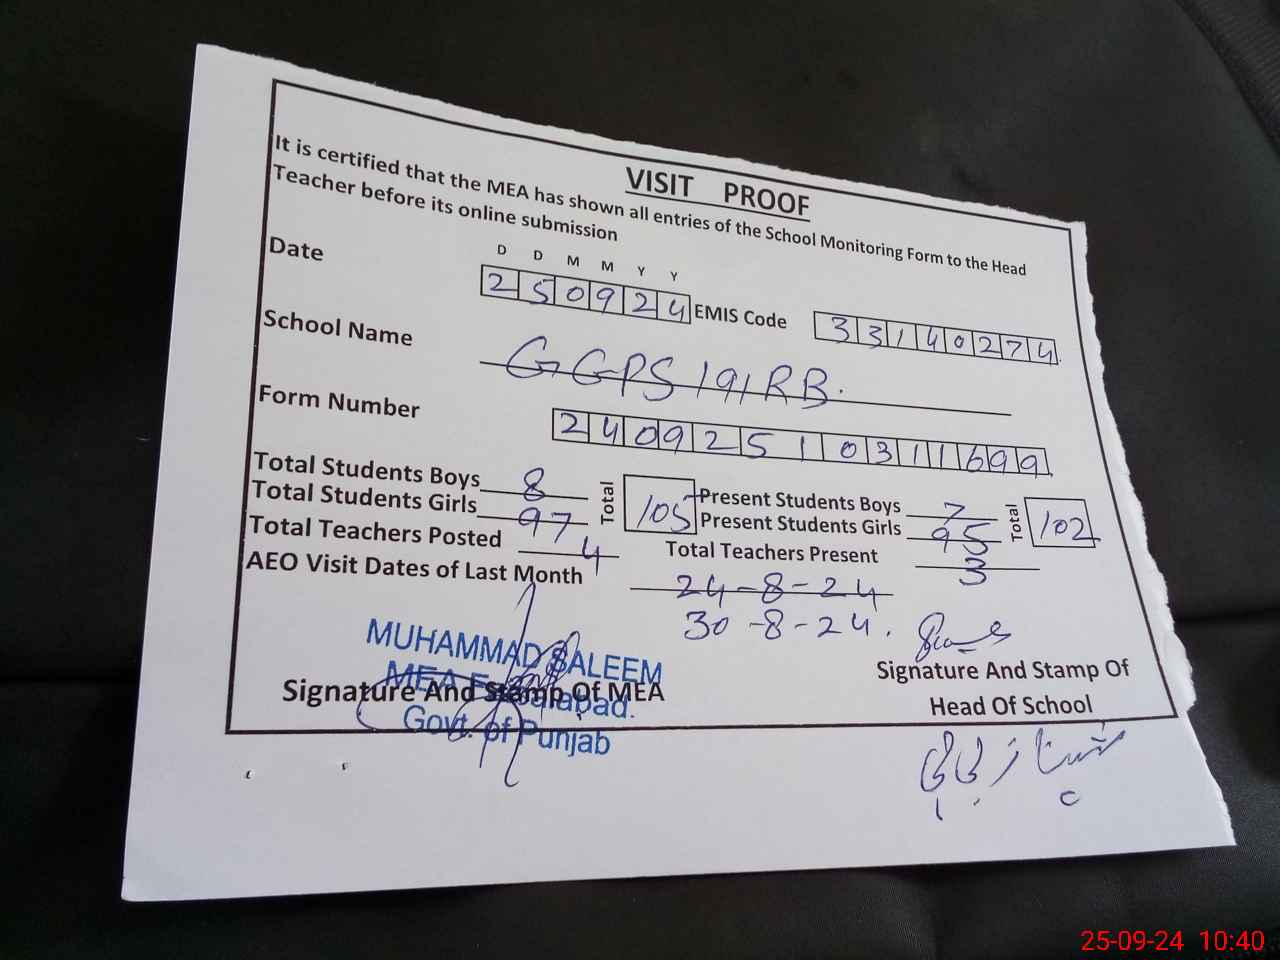 VISIT PROOF
It is certified that the MEA has shown all entries of the School Monitoring Form to the Head
Teacher before its online submission
D D M M Y Y
Date 250924 EMIS Code 33140274
School Name GGPS 191RB.
Form Number 24092510311699
Total Students Boys 8 Total 105 Present Students Boys 7 Total 102
Total Students Girls 97 Present Students Girls 95
Total Teachers Posted 4 Total Teachers Present 3
AEO Visit Dates of Last Month 24-8-24
30-8-24.
MUHAMMAD SALEEM
MEA Faisalabad.
Govt. of Punjab
Signature And Stamp Of MEA
Signature And Stamp Of
Head Of School
25-09-24 10:40